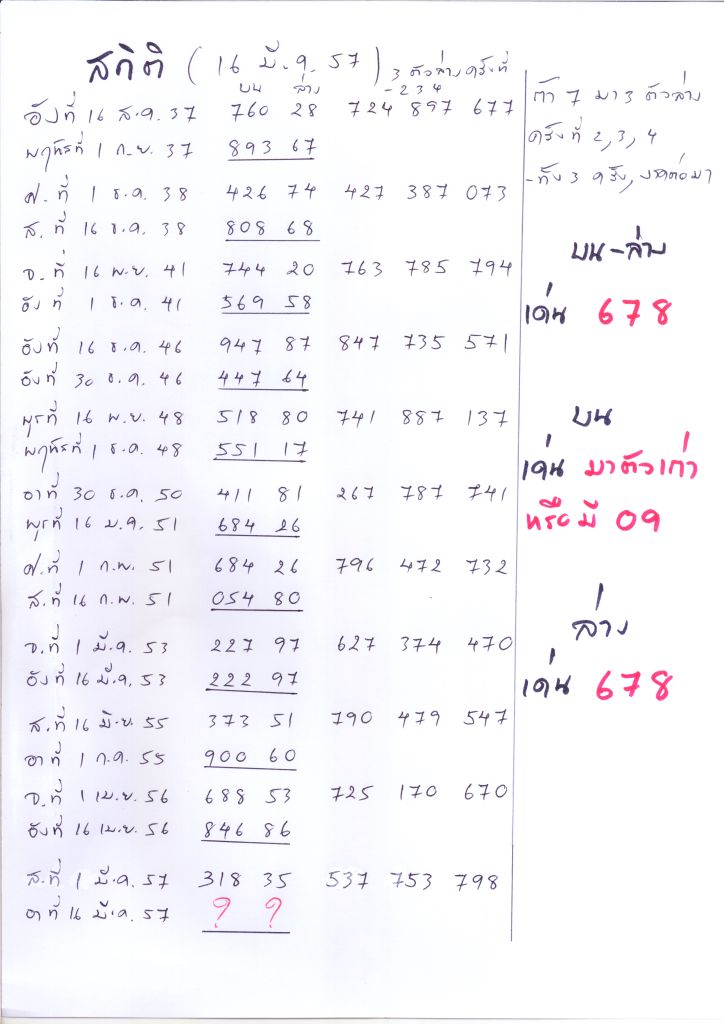 สถิติ ( 16 มี.ค. 57 ) 3 ตัวล่าง ครั้งที่
บน ล่าง - 2 3 4
อังที่ 16 ส.ค. 37 760 28 724 897 677
พฤหัสที่ 1 ก.ย. 37 893 67
ศ. ที่ 1 ธ.ค. 38 426 74 427 387 073
ส. ที่ 16 ธ.ค. 38 808 68
จ. ที่ 16 พ.ย. 41 744 20 763 785 794
อัง ที่ 1 ธ.ค. 41 569 58
อังที่ 16 ธ.ค. 46 947 87 847 735 571
อังที่ 30 ธ.ค. 46 447 64
พุธที่ 16 พ.ย. 48 518 80 741 887 137
พฤหัสที่ 1 ธ.ค. 48 551 17
อาที่ 30 ธ.ค. 50 411 81 267 787 741
พุธที่ 16 ม.ค. 51 684 26
ศ.ที่ 1 ก.พ. 51 684 26 796 472 732
ส.ที่ 16 ก.พ. 51 054 80
จ.ที่ 1 มี.ค. 53 227 97 627 374 470
อังที่ 16 มี.ค. 53 222 97
ส.ที่ 16 มิ.ย. 55 373 51 790 479 547
อาที่ 1 ก.ค. 55 900 60
จ.ที่ 1 เม.ย. 56 688 53 725 170 670
อังที่ 16 เม.ย. 56 846 86
ส.ที่ 1 มี.ค. 57 318 35 537 753 798
อาที่ 16 มี.ค. 57 ? ?
ถ้า 7 มา 3 ตัวล่าง
ครั้งที่ 2, 3, 4
- ทั้ง 3 ครั้ง, งวดต่อมา
บน - ล่าง
เด่น 678
บน
เด่น มาตัวเก่า
หรือมี 09
ล่าง
เด่น 678